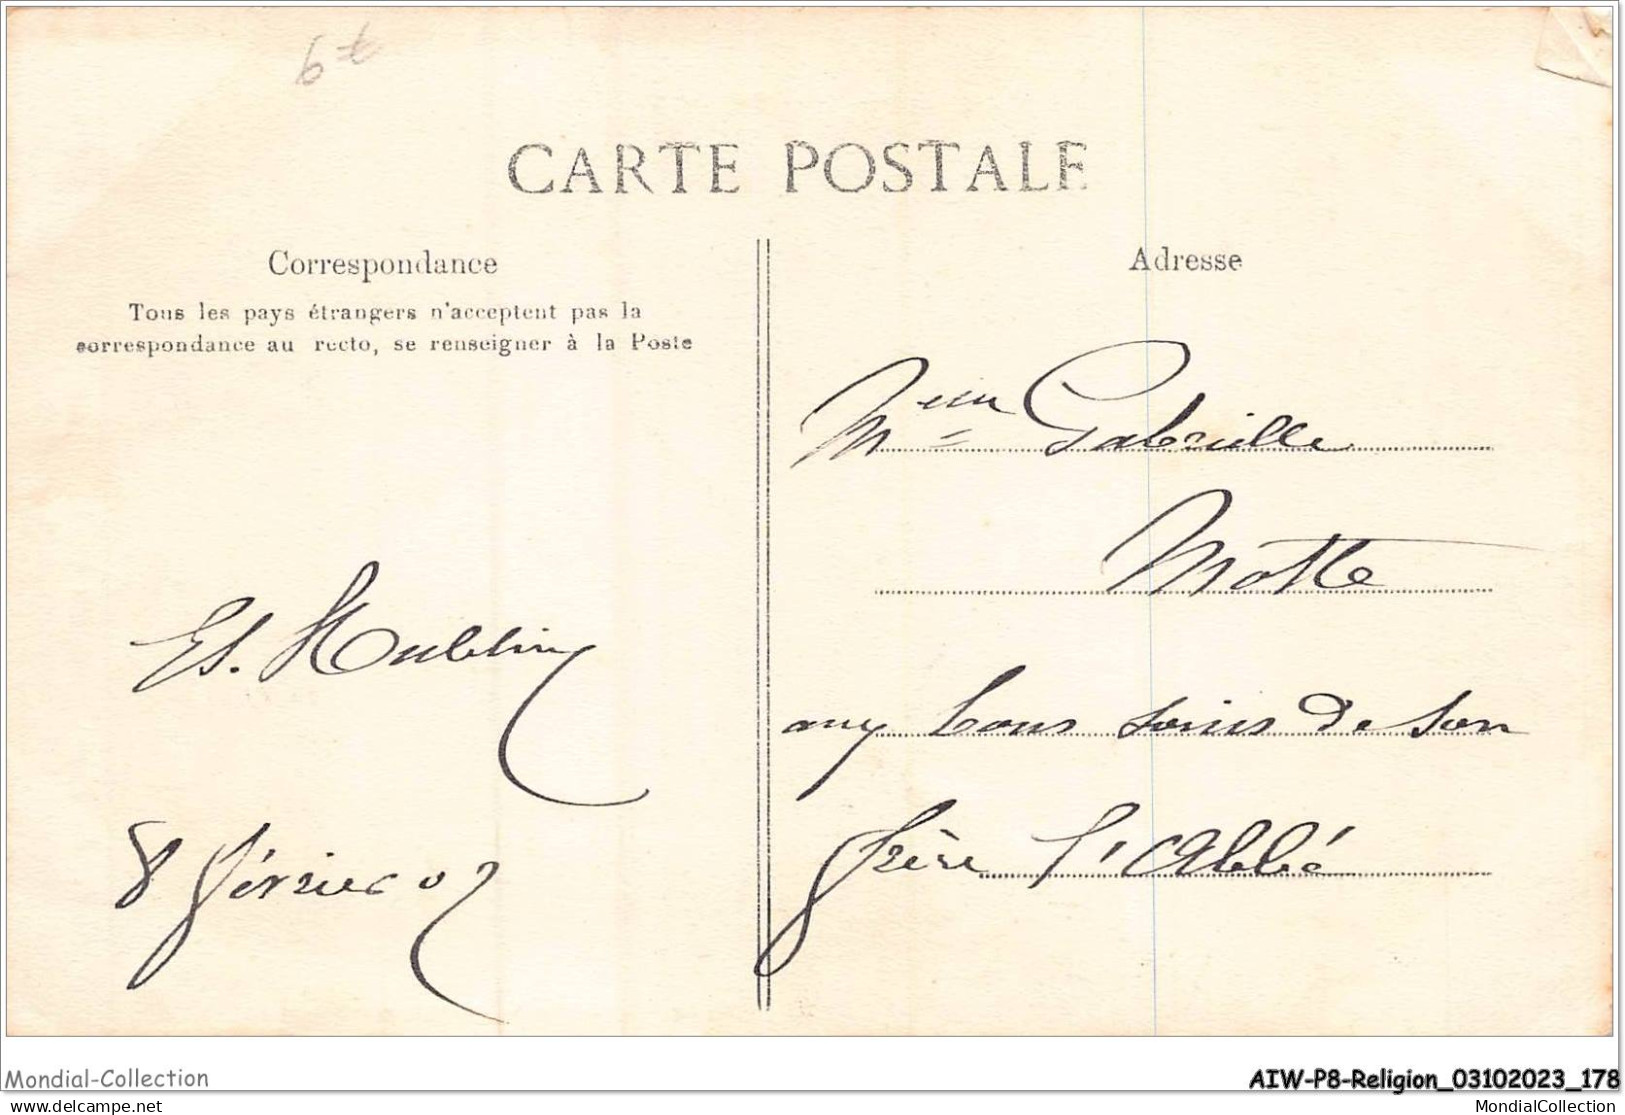 6 t
CARTE POSTALE
Correspondance
Tous les pays étrangers n'acceptent pas la
correspondance au recto, se renseigner à la Poste
Adresse
Gabrielle
Motte
aux bons soins de son
frère l'Abbé
Es.
8 février 07
Mondial-Collection
AIW-P8-Religion_03102023_178
delcampe.net
MondialCollection